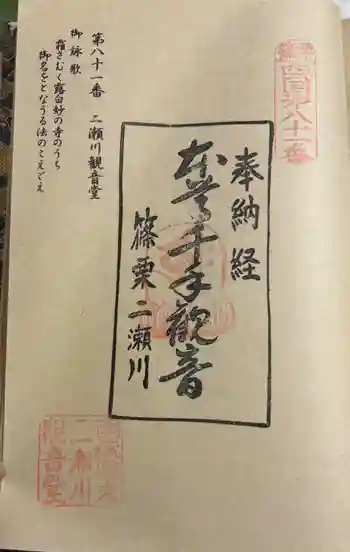 四国第八十一番
奉納経
本尊千手観音
篠栗二瀬川
第八十一番 二瀬川観音堂
御詠歌
霜さむく露白妙の寺のうち
御名をとなうる法のこえごえ
二瀬川
観音堂